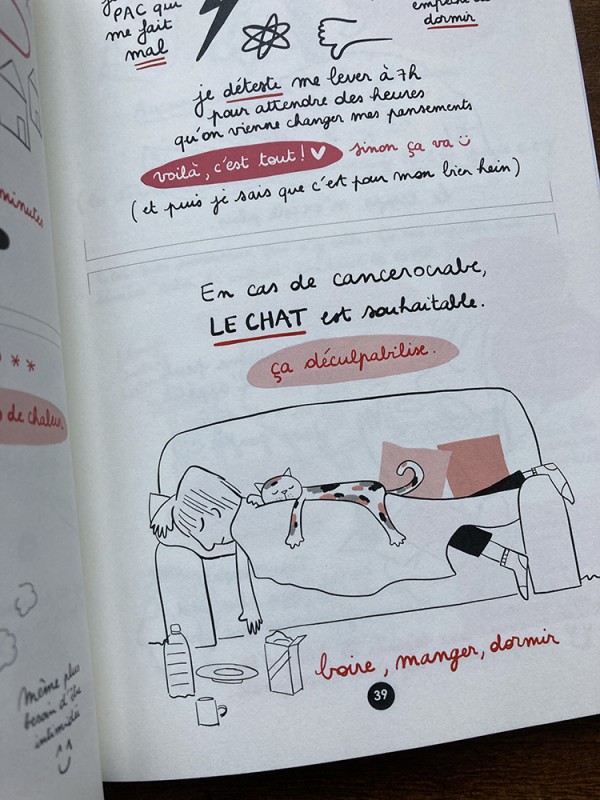 PAC qui
me fait
mal
dormir
je déteste me lever à 7h
pour attendre des heures
qu'on vienne changer mes pansements
voilà, c'est tout ! sinon ça va
(et puis je sais que c'est pour mon bien hein)
minutes
de chaleur.
En cas de cancerocrabe,
LE CHAT est souhaitable.
ça déculpabilise.
même plus
besoin d'être
intimidée
boire, manger, dormir
39